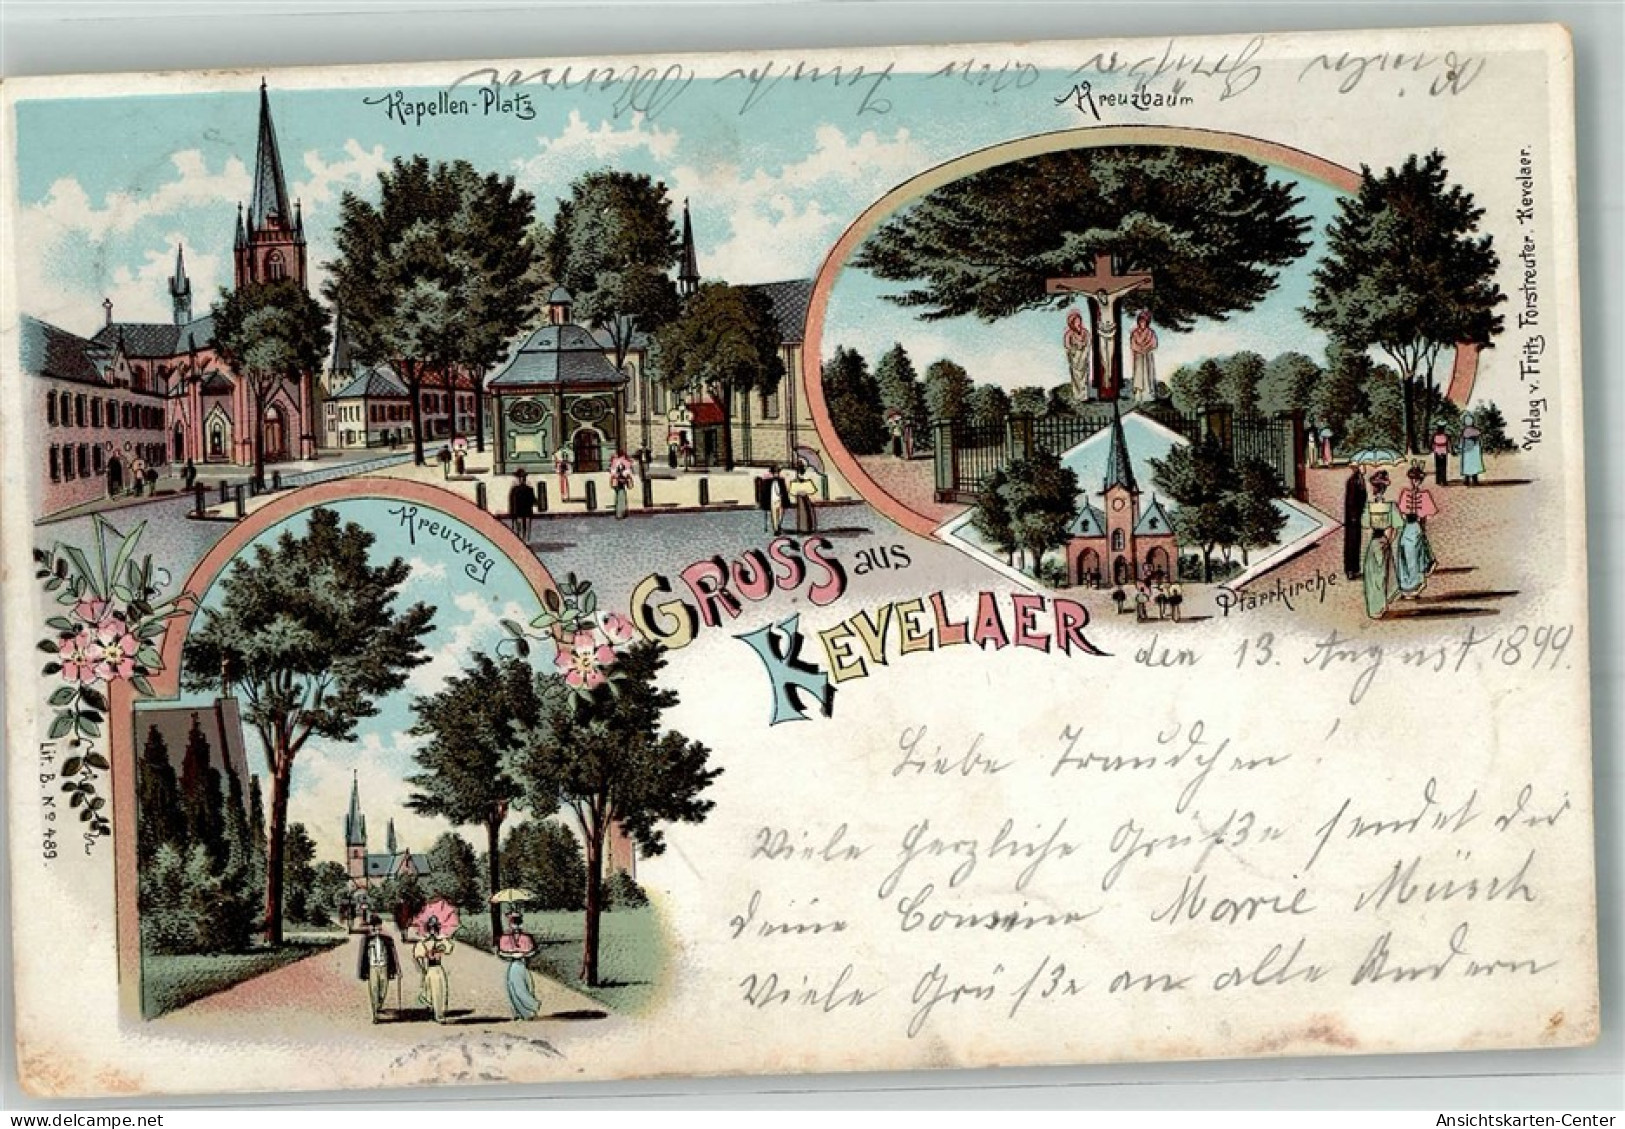 Kapellen-Platz
Kreuzbaum
Verlag v. Fritz Forstreuter. Kevelaer.
Kreuzweg
GRUSS aus
KEVELAER
Pfarrkirche
Lit. B. Nº 489.
den 13. August 1899.
Liebe Traudchen!
Viele Herzliche Grüße sendet Dir
deine Cousine Marie Müsch
Viele Grüße an alle Andern
Viele Grüße von
Ansichtskarten-Center